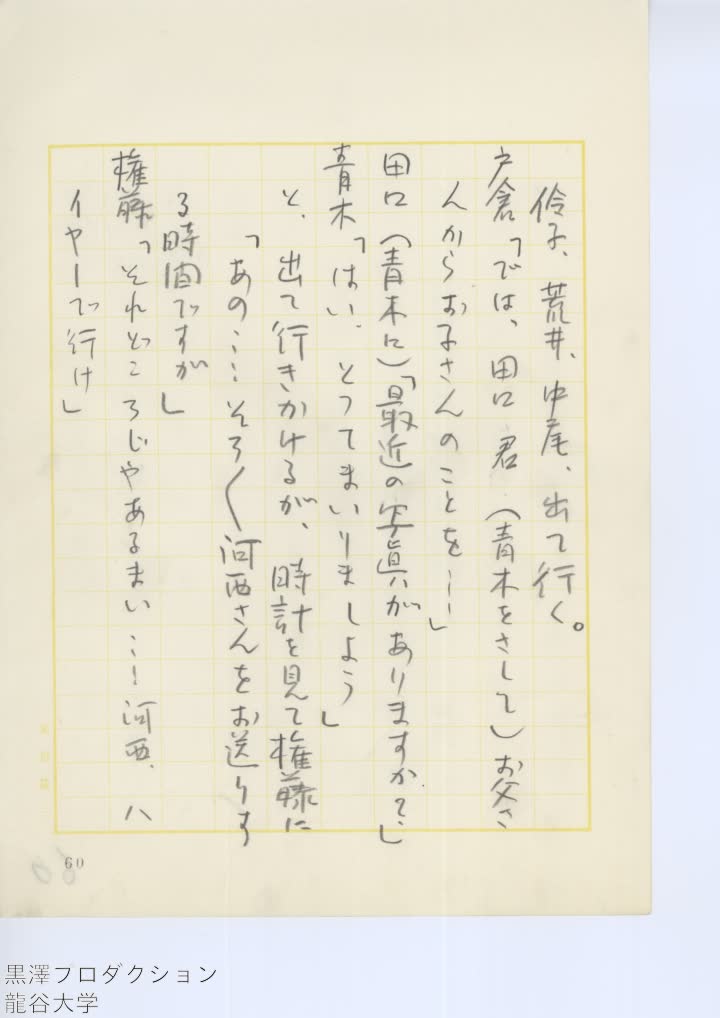 伶子、荒井、中尾、出て行く。
戸倉「では、田口君（青木をさして）お父さ
んからお子さんのことを……」
田口（青木に）「最近の写眞がありますか？」
青木「はい、とってまいりましよう」
と、出て行きかけるが、時計を見て権藤に
「あの……そろ〱河西さんをお送りす
る時間ですが」
権藤「それどころじゃあるまい…！河西、ハ
イヤーで行け」
60
黒澤プロダクション
龍谷大学